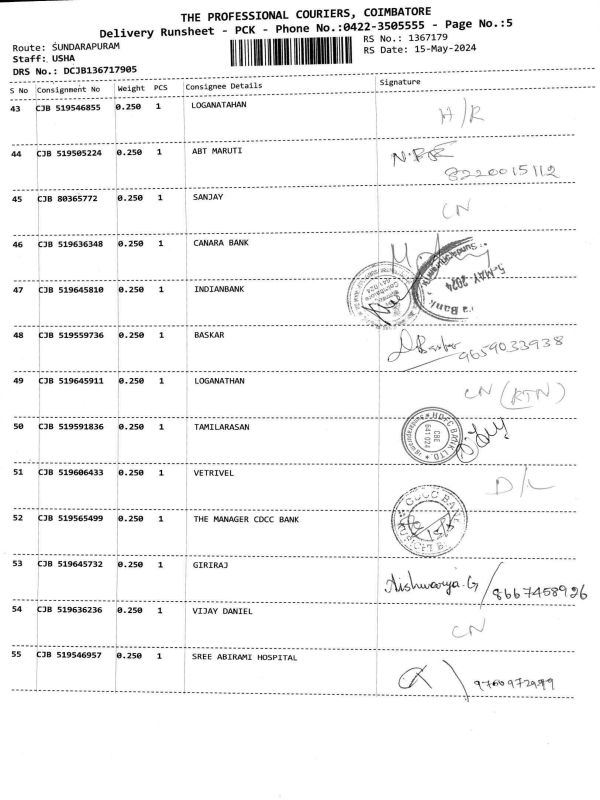 THE PROFESSIONAL COURIERS, COIMBATORE
Delivery Runsheet - PCK - Phone No.:0422-3505555 - Page No.:5
Route: SUNDARAPURAM
RS No.: 1367179
Staff: USHA
RS Date: 15-May-2024
DRS No.: DCJB136717905
S No Consignment No Weight PCS Consignee Details Signature
43 CJB 519546855 0.250 1 LOGANATAHAN H/R
44 CJB 519505224 0.250 1 ABT MARUTI
8220015112
45 CJB 80365772 0.250 1 SANJAY CN
46 CJB 519636348 0.250 1 CANARA BANK
5-MAY 2024
47 CJB 519645810 0.250 1 INDIANBANK
641 024
a Bank
48 CJB 519559736 0.250 1 BASKAR
9659033938
49 CJB 519645911 0.250 1 LOGANATHAN CN (RTN)
50 CJB 519591836 0.250 1 TAMILARASAN
HDFC BANK LTD
CBE
641 024
51 CJB 519606433 0.250 1 VETRIVEL D/L
CDCC BANK
52 CJB 519565499 0.250 1 THE MANAGER CDCC BANK
53 CJB 519645732 0.250 1 GIRIRAJ
Aishwarya.G/8667458926
54 CJB 519636236 0.250 1 VIJAY DANIEL CN
55 CJB 519546957 0.250 1 SREE ABIRAMI HOSPITAL